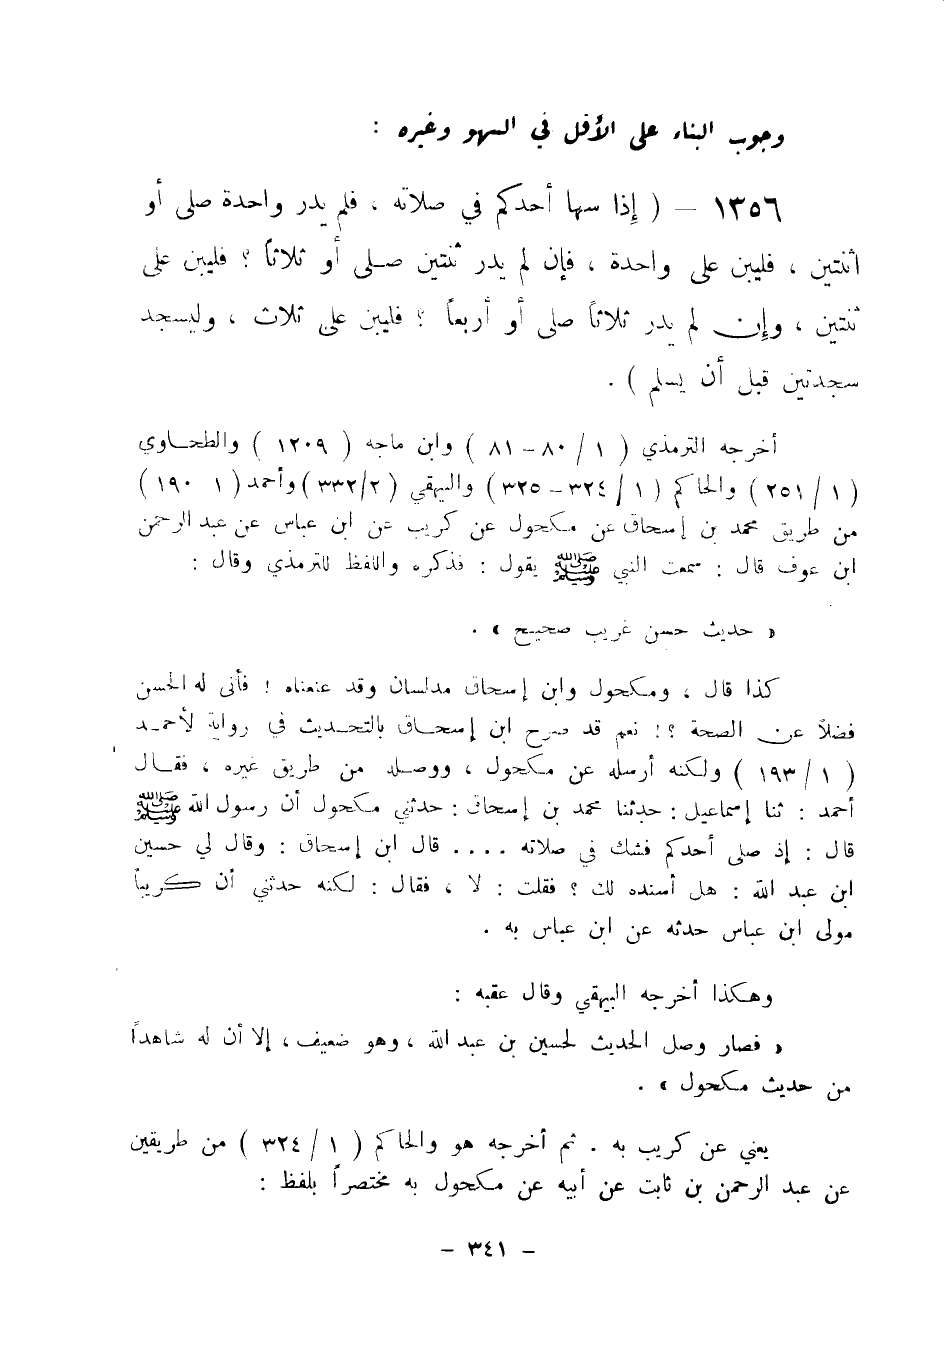 وجوب البناء على الأقل في السهو وغيره :
١٣٥٦ – ( إذا سها أحدكم في صلاته ، فلم يدر واحدة صلى أو
اثنتين ، فليبن على واحدة ، فإن لم يدر ثنتين صلى أو ثلاثاً ؟ فليبن على
ثنتين ، وإن لم يدر ثلاثاً صلى أو أربعاً ؟ فليبن على ثلاث ، وليسجد
سجدتين قبل أن يسلم ) .
أخرجه الترمذي ( ١ / ٨٠ – ٨١ ) وابن ماجه ( ١٢٠٩ ) والطحاوي
( ١ / ٢٥١ ) والحاكم ( ١ / ٣٢٤ – ٣٢٥ ) والبيهقي ( ٢/ ٣٣٢ ) وأحمد ( ١ ١٩٠ )
من طريق محمد بن إسحاق عن مكحول عن كريب عن ابن عباس عن عبد الرحمن
ابن عوف قال : سمعت النبي ﷺ يقول : فذكره واللفظ للترمذي وقال :
« حديث حسن غريب صحيح » .
كذا قال ، ومكحول وابن إسحاق مدلسان وقد عنعناه ! فأنى له الحسن
فضلاً عن الصحة ؟! نعم قد صرح ابن إسحاق بالتحديث في رواية لأحمد
( ١ / ١٩٣ ) ولكنه أرسله عن مكحول ، ووصله من طريق غيره ، فقال
أحمد : ثنا إسماعيل : حدثنا محمد بن إسحاق : حدثني مكحول أن رسول الله ﷺ
قال : إذ صلى أحدكم فشك في صلاته .... قال ابن إسحاق : وقال لي حسين
ابن عبد الله : هل أسنده لك ؟ فقلت : لا ، فقال : لكنه حدثني أن كريباً
مولى ابن عباس حدثه عن ابن عباس به .
وهكذا أخرجه البيهقي وقال عقبه :
« فصار وصل الحديث لحسين بن عبد الله ، وهو ضعيف ، إلا أن له شاهداً
من حديث مكحول » .
يعني عن كريب به . ثم أخرجه هو والحاكم ( ١ / ٣٢٤ ) من طريقين
عن عبد الرحمن بن ثابت عن أبيه عن مكحول به مختصراً بلفظ :
– ٣٤١ –